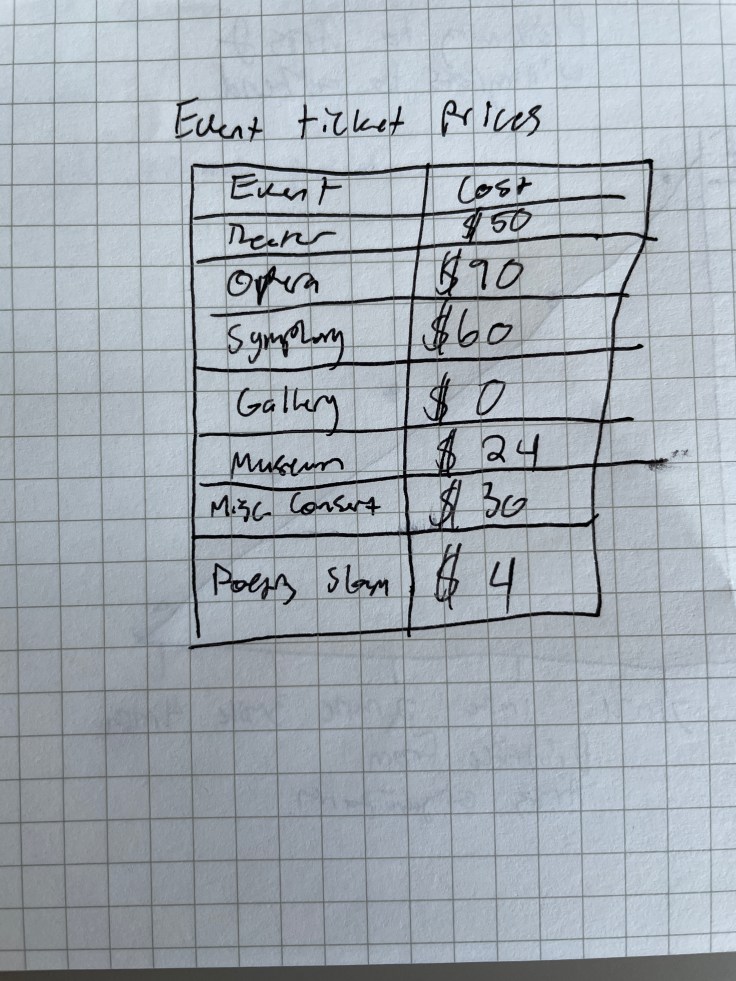 Event ticket Prices
Event Cost
Theater $50
Opera $90
Symphony $60
Gallery $0
Museum $24
Misc Concert $30
Poetry Slam $4